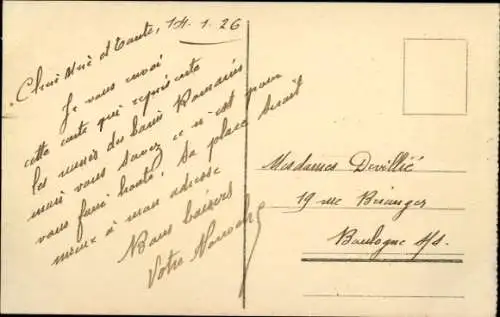 Cher Mné et Tante, 14.1.26
Je vous envoi
cette carte qui représente
les ruines des bains Romains
mais vous savez ce n'est pour
vous faire honte. Sa place serait
mieux à mon adresse
Bons baisers
Votre
Mesdames Devillié
19 rue Béranger
Boulogne s/s.